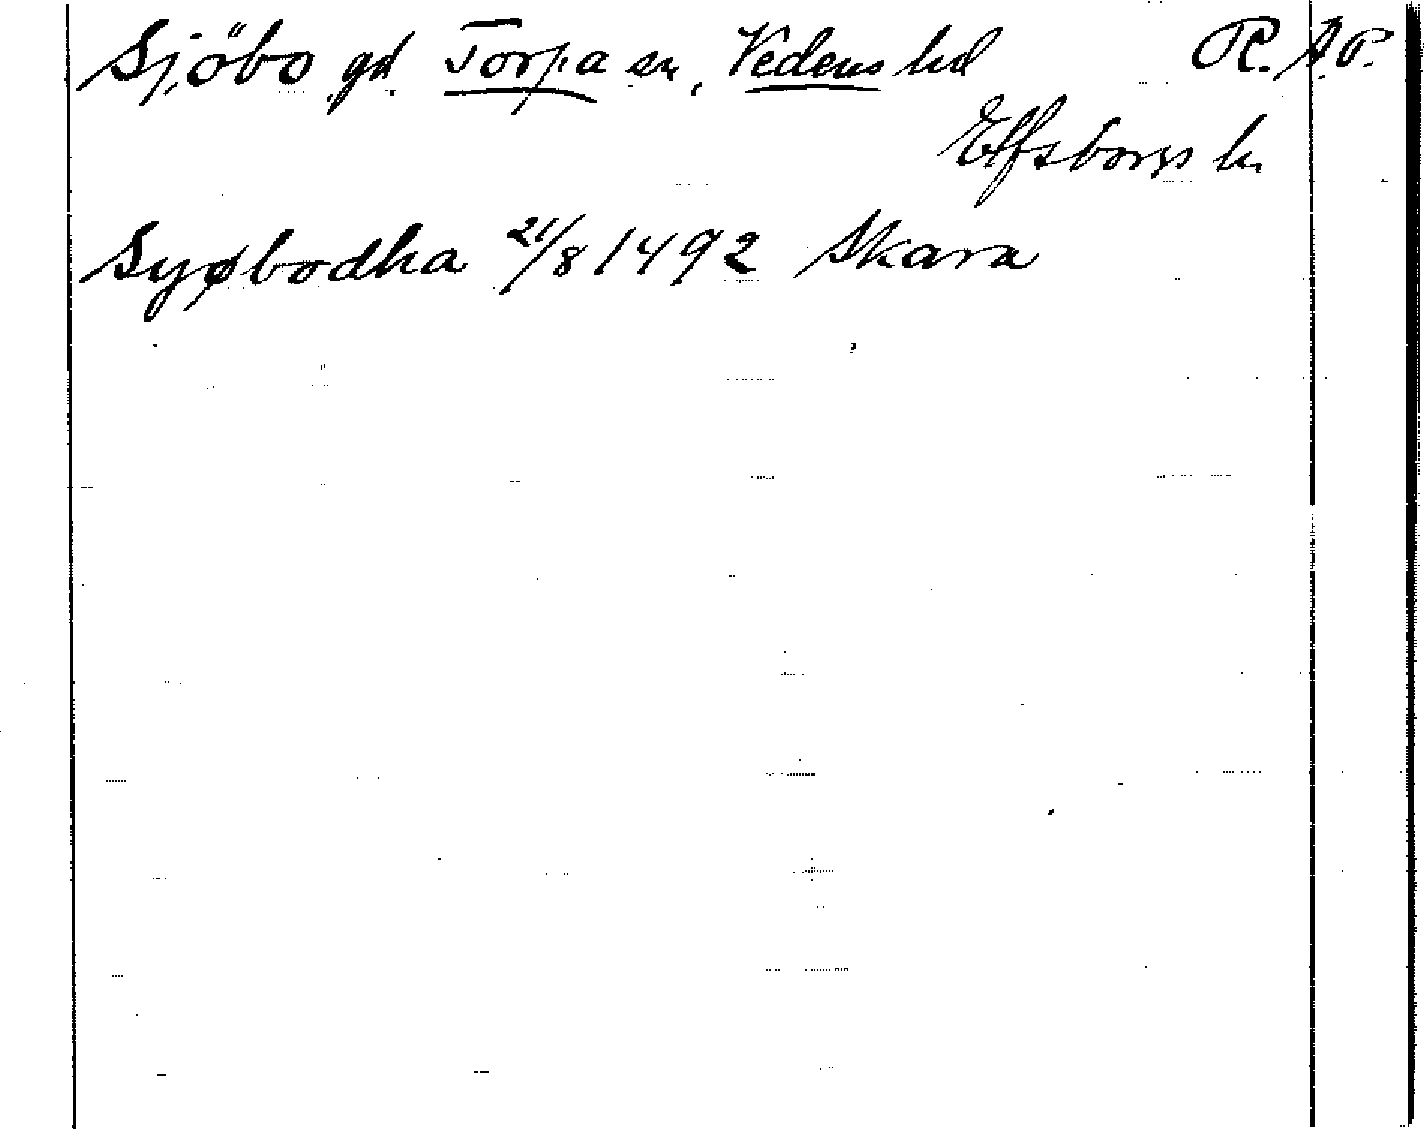 Sjöbo gd. Torpa sn, Vedens hd R.A.P.
Elfsborgs l.
Syøbodha 21/8 1492 Skara